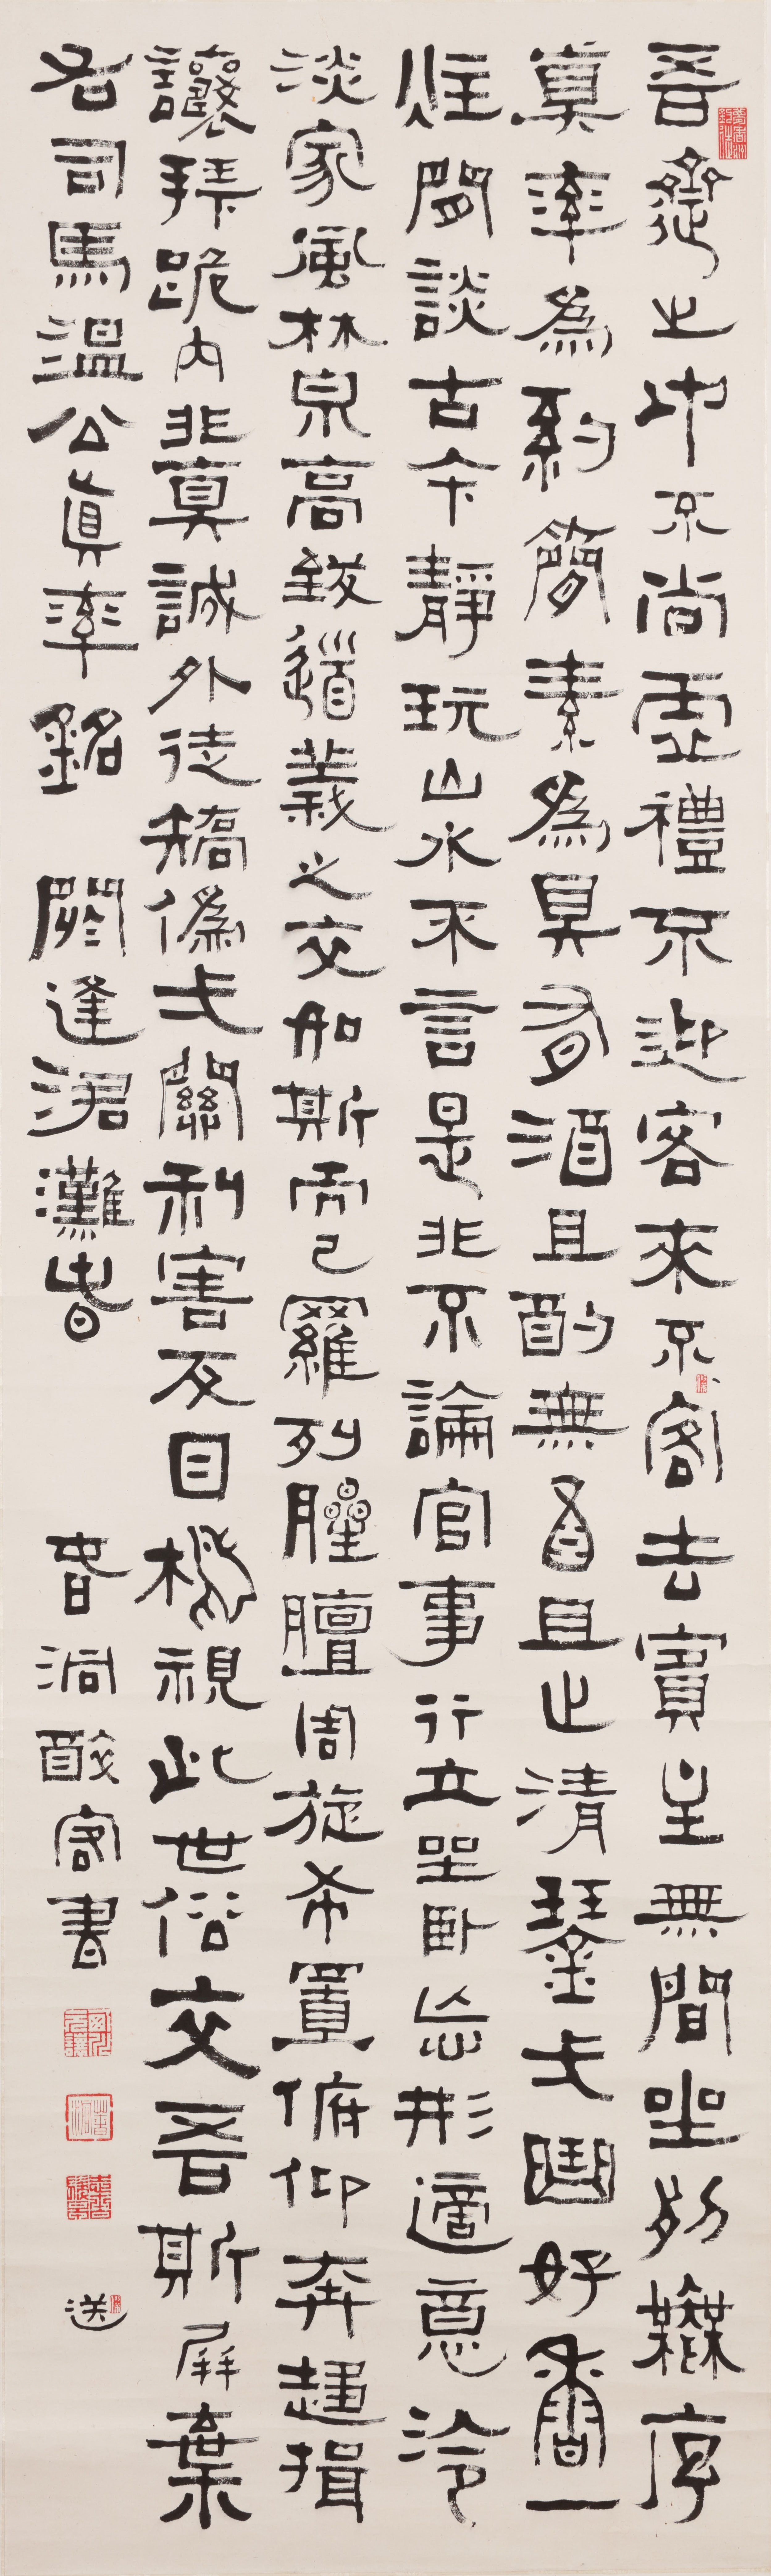 吾齋之中不尚虛禮不迎客來不客去賓主無間坐列無序
眞率爲約簡素爲具有酒且酌無酒且止清琴弌曲好香一
炷閒談古今靜玩山水不言是非不論官事行立坐臥忘形適意冷
淡家風林泉高致道義之交如斯而已羅列腥膻周旋布置俯仰奔趨揖
讓拜跪內非眞誠外徒矯僞弌關利害反目相視此世俗交吾斯屏棄
右司馬溫公眞率銘 閼逢涒灘春 春洞醉客書 送